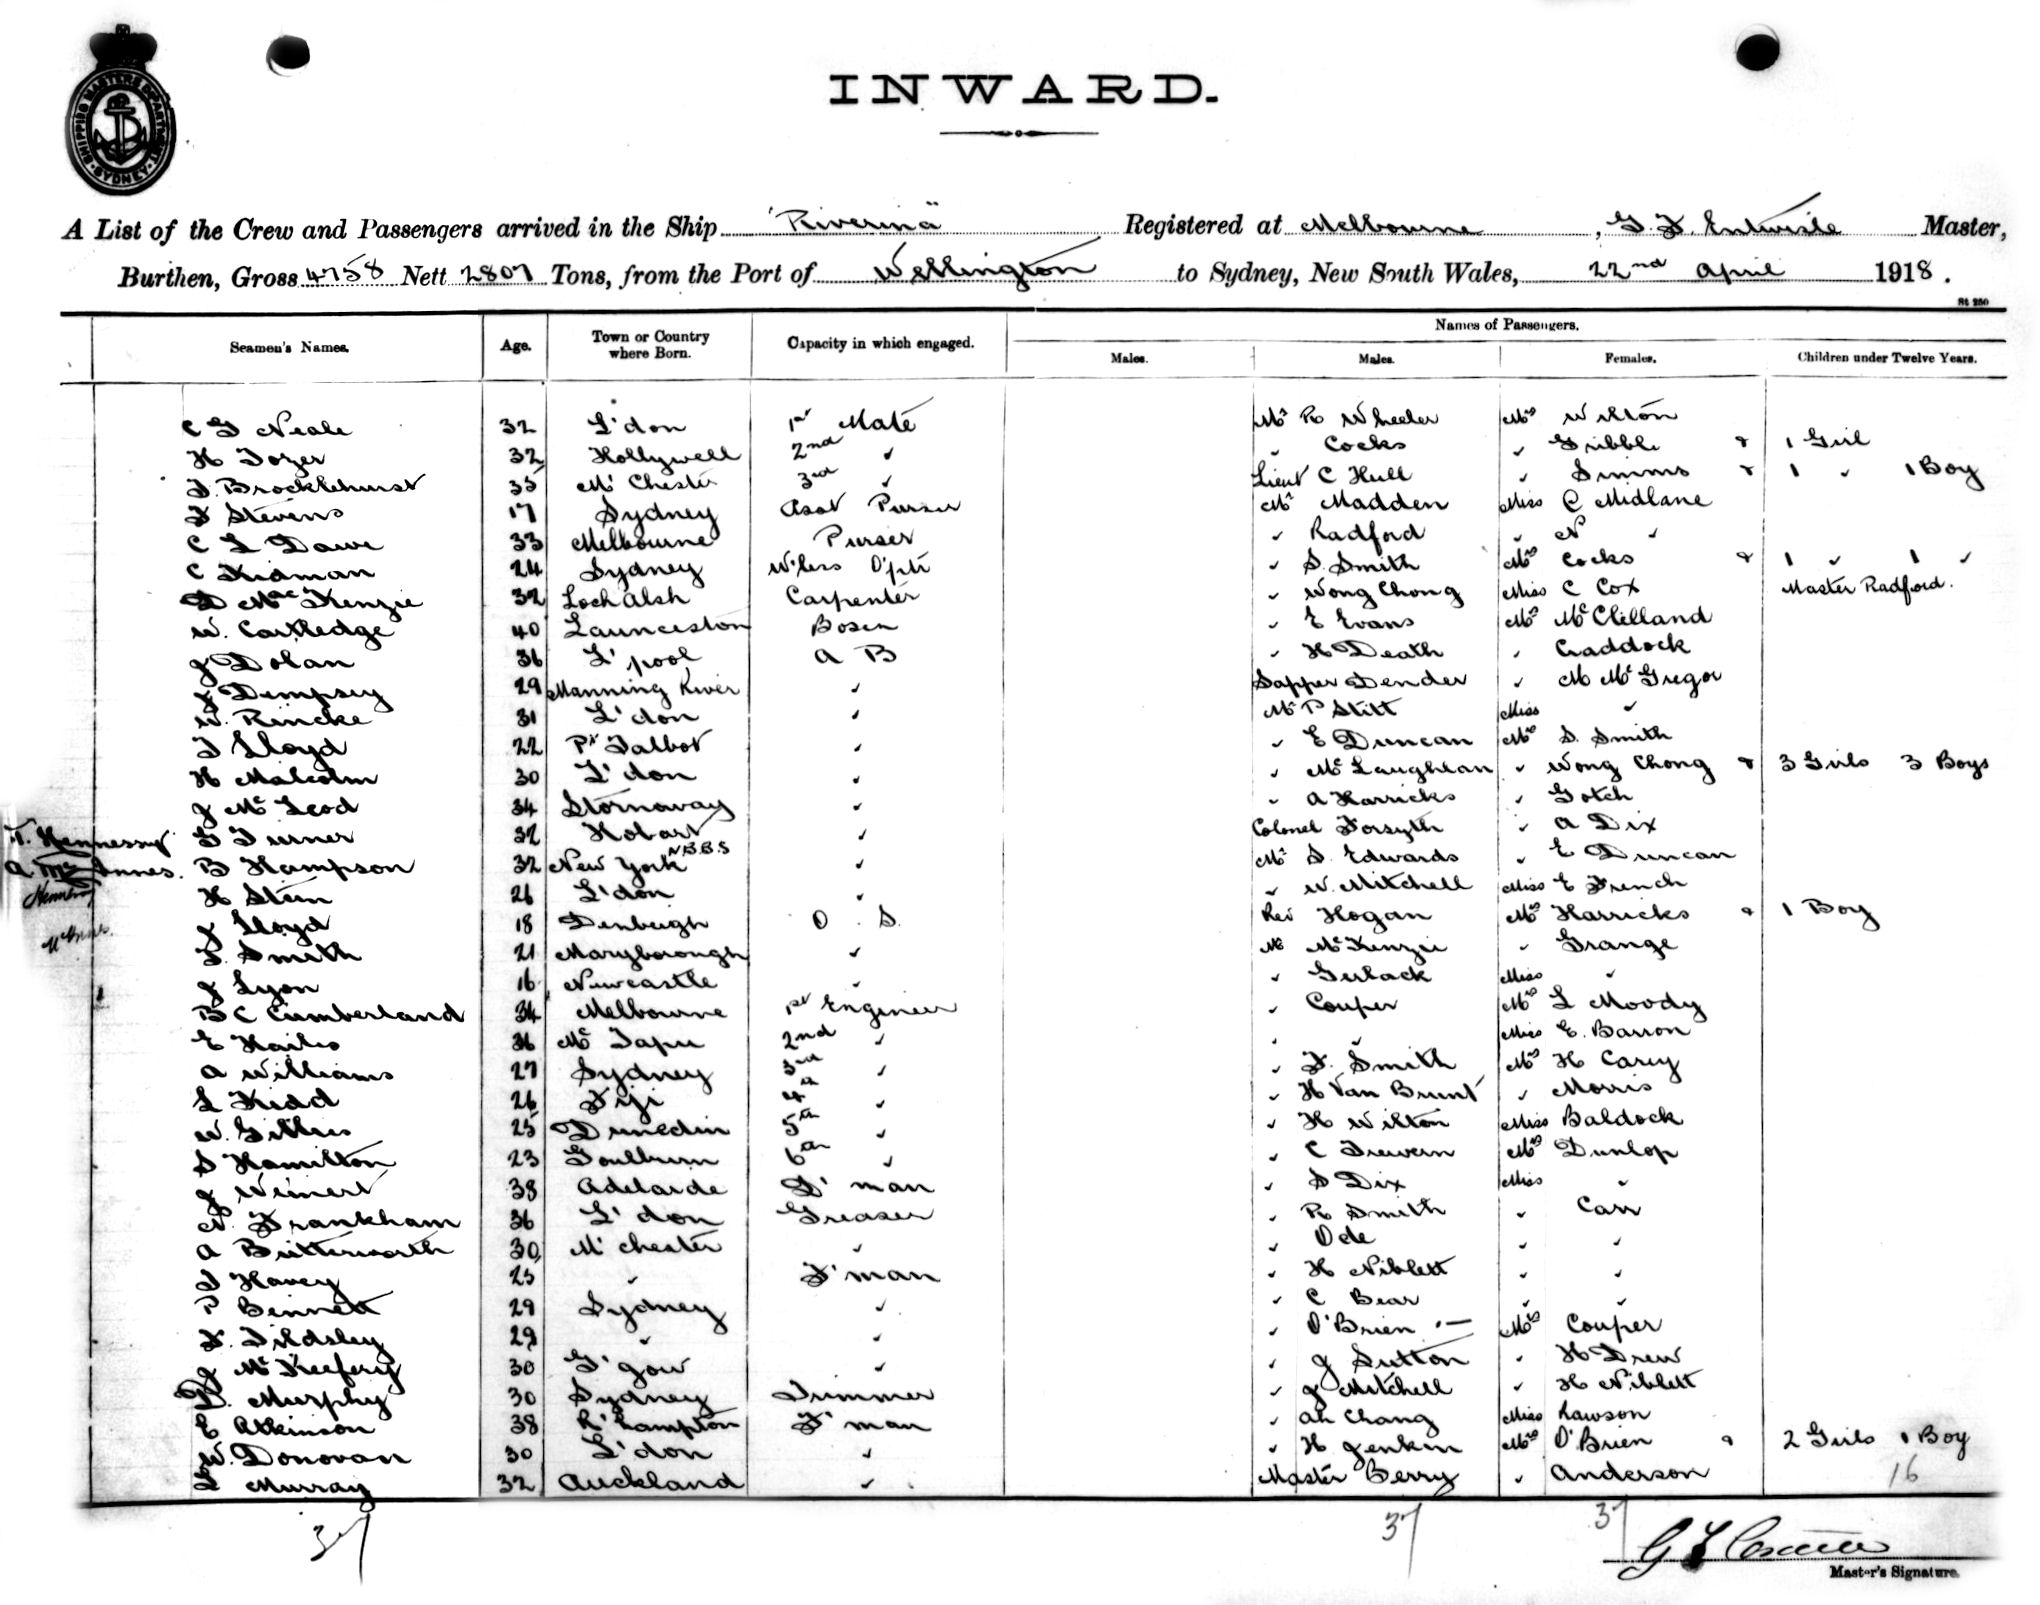 SHIPPING MASTERS DEPARTMENT
SYDNEY
INWARD.
A List of the Crew and Passengers arrived in the Ship "Riverina" Registered at Melbourne, G. F. Entwisle Master,
Burthen, Gross 4758 Nett 2807 Tons, from the Port of Wellington to Sydney, New South Wales, 22nd April 1918.
St 250
Seamen's Names. Age. Town or Country where Born. Capacity in which engaged. Names of Passengers.
Males. Males. Females. Children under Twelve Years.
C G Neale 32 L'don 1st Mate Mr R Wheeler Mrs Wilton
H Tozer 32 Hollywell 2nd " " Cocks " Gribble & 1 Girl
J. Brocklehurst 35 M'Chester 3rd " Lieut C Hull " Simms & 1 " 1 Boy
F Stevens 17 Sydney Asst Purser Mr Madden Miss C Midlane
C L Dawe 33 Melbourne Purser " Radford " N "
C Kidman 24 Sydney W'less Op'tr " S. Smith Mrs Cocks & 1 " 1 "
D MacKenzie 32 Loch Alsh Carpenter " Wong Chong Miss C Cox Master Radford.
W. Cartledge 40 Launceston Bosen " E Evans Mrs McClelland
J Dolan 36 L'pool A B " H Death " Craddock
J Dempsey 29 Manning River " Sapper Dender " M McGregor
W. Rincke 31 L'don " Mr P Stitt Miss "
J Lloyd 22 Pt Talbot " " E Duncan Mrs S. Smith
H Malcolm 30 L'don " " McLaughlan " Wong Chong & 3 Girls 3 Boys
J McLeod 34 Stornoway " " A Harricks " Gotch
T. Hennessy G Turner 32 Hobart " Colonel Forsyth " A Dix
A. McInnes. B Hampson 32 New York N.B.B.S " Mr S. Edwards " E Duncan
H Stein 26 L'don " " W. Mitchell Miss E French
J Lloyd 18 Denbeigh O. S. Rev Hogan Mrs Harricks & 1 Boy
McInnes.
F. Smith 21 Maryborough " Mr McKenzie " Grange
J Lyon 16 Newcastle " " Gerlack Miss "
B C Cumberland 34 Melbourne 1st Engineer " Couper Mrs L Moody
E Hailes 36 2nd " " " Miss E. Barron
A Williams 27 Sydney 3rd " " F. Smith Mrs H Carey
L Kidd 26 Fiji 4th " " H Van Brunt " Morris
W. Gillies 25 Dunedin 5th " " H Wilton Miss Baldock
S Hamilton 23 Goulburn 6th " " C Trevern Mrs Dunlop
J Weinert 38 Adelaide D'man " S Dix Miss "
N. Frankham 36 L'don Greaser " R Smith " Carr
A Butterworth 30 M'chester " " Ode " "
J Havey 25 " F'man " H Niblett " "
P Bennett 29 Sydney " " C Bear " "
F. Tildsley 29 " " " O'Brien Mrs Couper
J McKeefery 30 G'gow " " J Sutton " H Drew
D. Murphy 30 Sydney Trimmer " J Mitchell " H Niblett
E Atkinson 38 R'hampton F'man " Ah Chang Miss Rawson
W. Donovan 30 L'don " " H Jenkin Mrs O'Brien & 2 Girls 1 Boy
L Murray 32 Auckland " Master Berry " Anderson 16
37 37 37
Master's Signature.